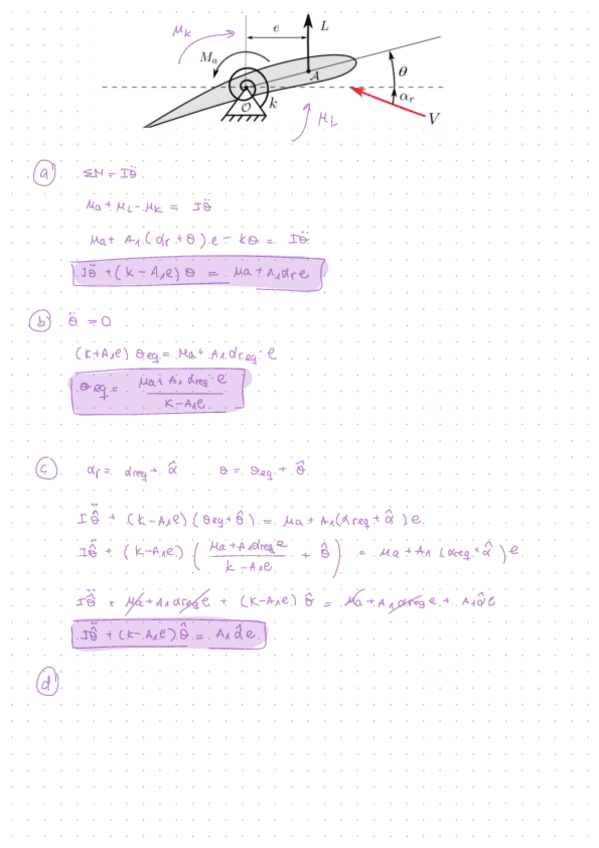 μk
e
L
Ma
A
θ
αr
O
k
V
μL
a) ΣM = Iθ̈
μa + μL - μk = Iθ̈
μa + A₁.(αr + θ).e - kθ = Iθ̈
Iθ̈ + (k - A₁e)θ = μa + A₁αr e
b) θ̈ = 0
(k + A₁e) θeq = μa + A₁ αreq · e
θeq = (μa + A₁ αreq · e) / (k - A₁e)
c) αr = αreq + α̂ θ = θeq + θ̂
Iθ̂̈ + (k - A₁e)(θeq + θ̂) = μa + A₁(αreq + α̂)e
Iθ̂̈ + (k - A₁e) ((μa + A₁αreq e) / (k - A₁e) + θ̂) = μa + A₁ (αreq + α̂)e
Iθ̂̈ + μa + A₁αreq e + (k - A₁e) θ̂ = μa + A₁αreq e + A₁α̂e
Iθ̂̈ + (k - A₁e)θ̂ = A₁α̂e
d)